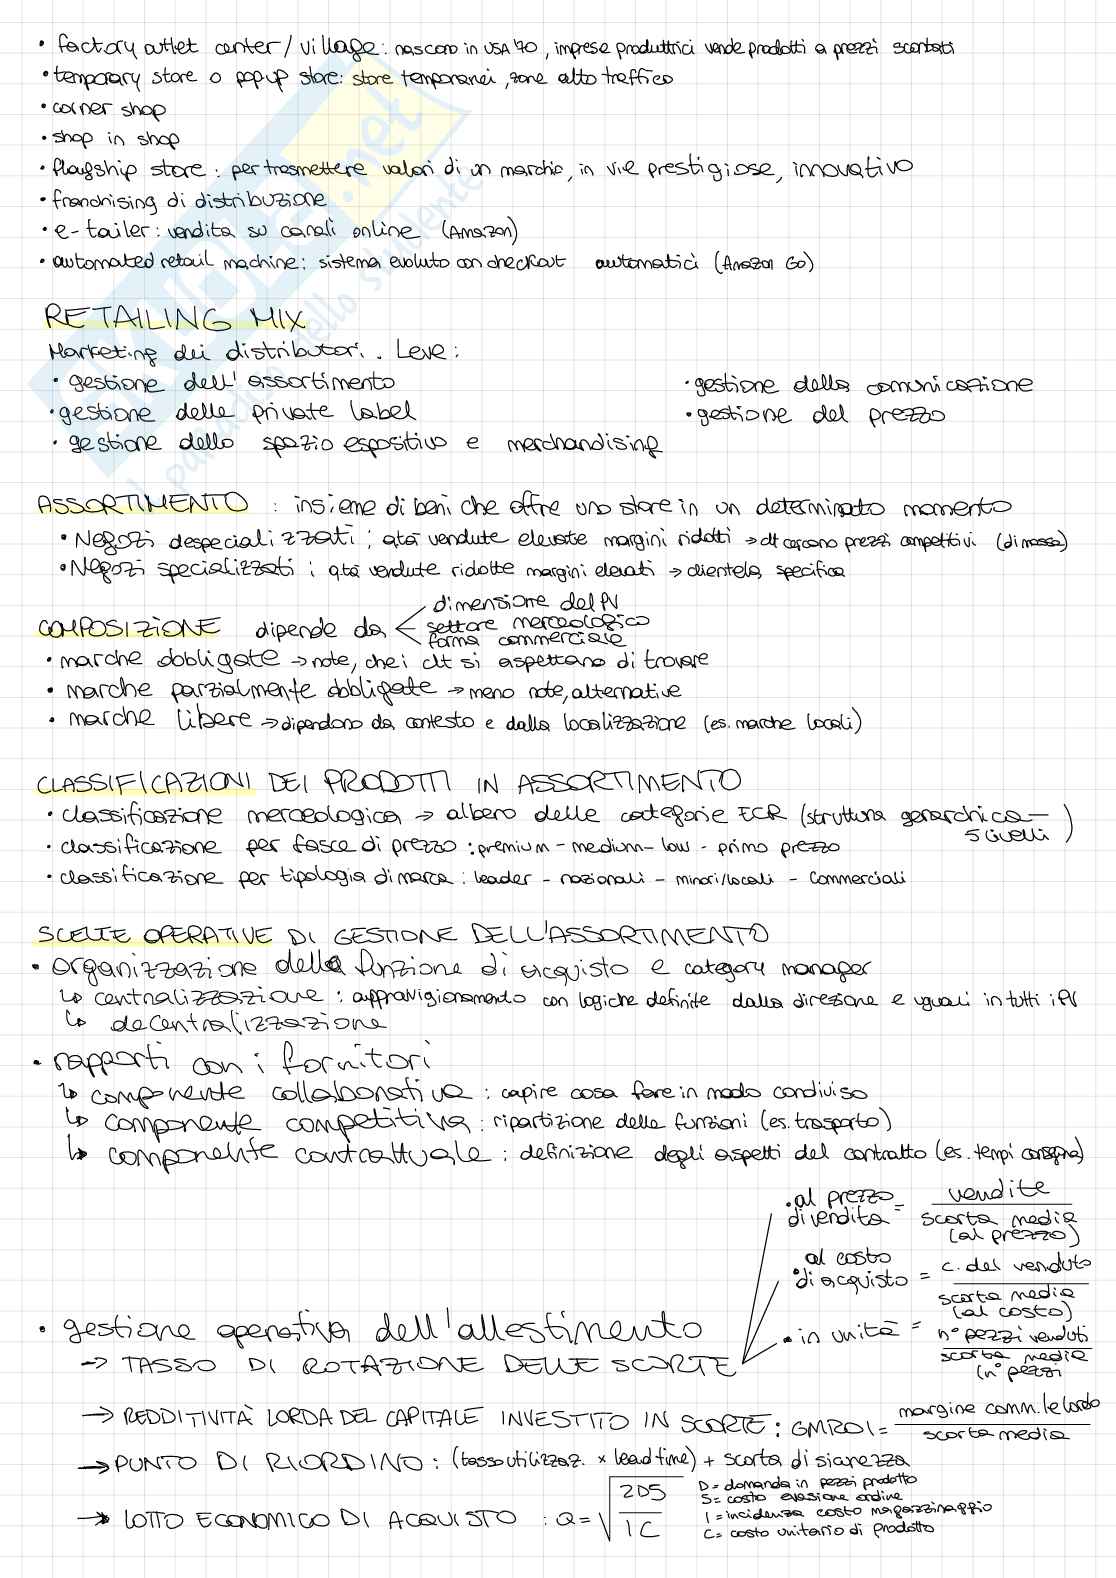 • factory outlet center / village: nascono in USA '70, imprese produttrici vende prodotti a prezzi scontati
• temporary store o pop up store: store temporanei, zone alto traffico
• corner shop
• shop in shop
• flagship store: per trasmettere valori di un marchio, in vie prestigiose, innovativo
• franchising di distribuzione
• e-tailer: vendita su canali online (Amazon)
• automated retail machine: sistema evoluto con checkout automatici (Amazon Go)
RETAILING MIX
Marketing dei distributori. Leve:
• gestione dell'assortimento
• gestione delle private label
• gestione dello spazio espositivo e merchandising
• gestione della comunicazione
• gestione del prezzo
ASSORTIMENTO : insieme di beni che offre uno store in un determinato momento
• Negozi despecializzati ; qtà vendute elevate margini ridotti → clt cercano prezzi competitivi (di massa)
• Negozi specializzati ; qtà vendute ridotte margini elevati → clientela specifica
COMPOSIZIONE dipende da
dimensione del PV
settore merceologico
forma commerciale
• marche obbligate → note, che i clt si aspettano di trovare
• marche parzialmente obbligate → meno note, alternative
• marche libere → dipendono da contesto e dalla localizzazione (es. marche locali)
CLASSIFICAZIONI DEI PRODOTTI IN ASSORTIMENTO
• classificazione merceologica → albero delle categorie ECR (struttura gerarchica – 5 livelli)
• classificazione per fasce di prezzo : premium – medium – low - primo prezzo
• classificazione per tipologia di marca : leader – nazionali – minori/locali – commerciali
SCELTE OPERATIVE DI GESTIONE DELL'ASSORTIMENTO
• organizzazione della funzione di acquisto e category manager
↳ centralizzazione : approvvigionamento con logiche definite dalla direzione e uguali in tutti i PV
↳ decentralizzazione
• rapporti con i fornitori
↳ componente collaborativa : capire cosa fare in modo condiviso
↳ componente competitiva : ripartizione delle funzioni (es. trasporto)
↳ componente contrattuale : definizione degli aspetti del contratto (es. tempi consegna)
• al prezzo di vendita = vendite / scorta media (al prezzo)
• al costo di acquisto = c. del venduto / scorta media (al costo)
• in unità = n° pezzi venduti / scorta media (n° pezzi
• gestione operativa dell'allestimento
→ TASSO DI ROTAZIONE DELLE SCORTE
→ REDDITIVITÀ LORDA DEL CAPITALE INVESTITO IN SCORTE : GMROI = margine comm.le lordo / scorta media
→ PUNTO DI RIORDINO : (tasso utilizzaz. × lead time) + scorta di sicurezza
→ LOTTO ECONOMICO DI ACQUISTO : Q = √ 2DS / IC
D = domanda in pezzi prodotto
S = costo evasione ordine
I = incidenza costo magazzinaggio
C = costo unitario di prodotto